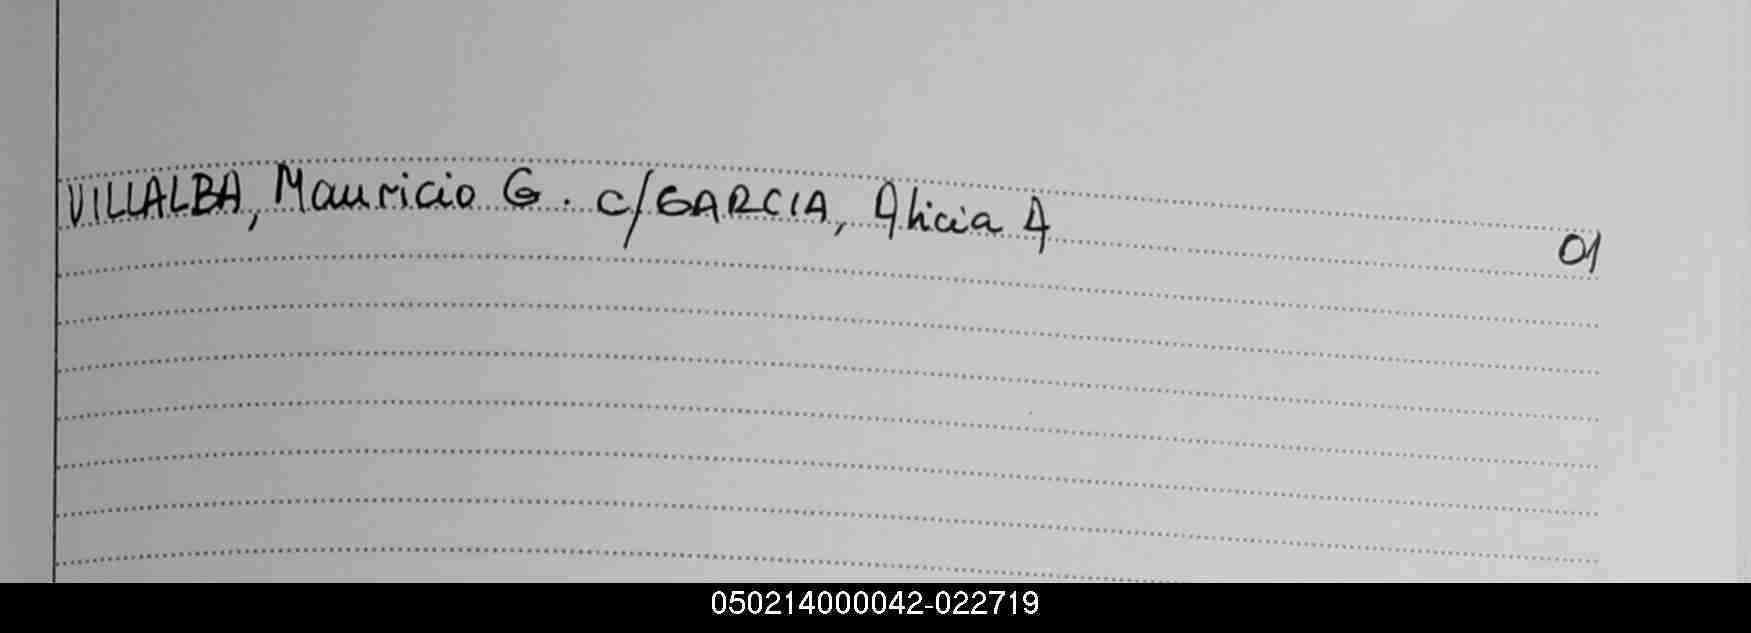 VILLALBA, Mauricio G. c/GARCIA, Alicia A 01
050214000042-022719